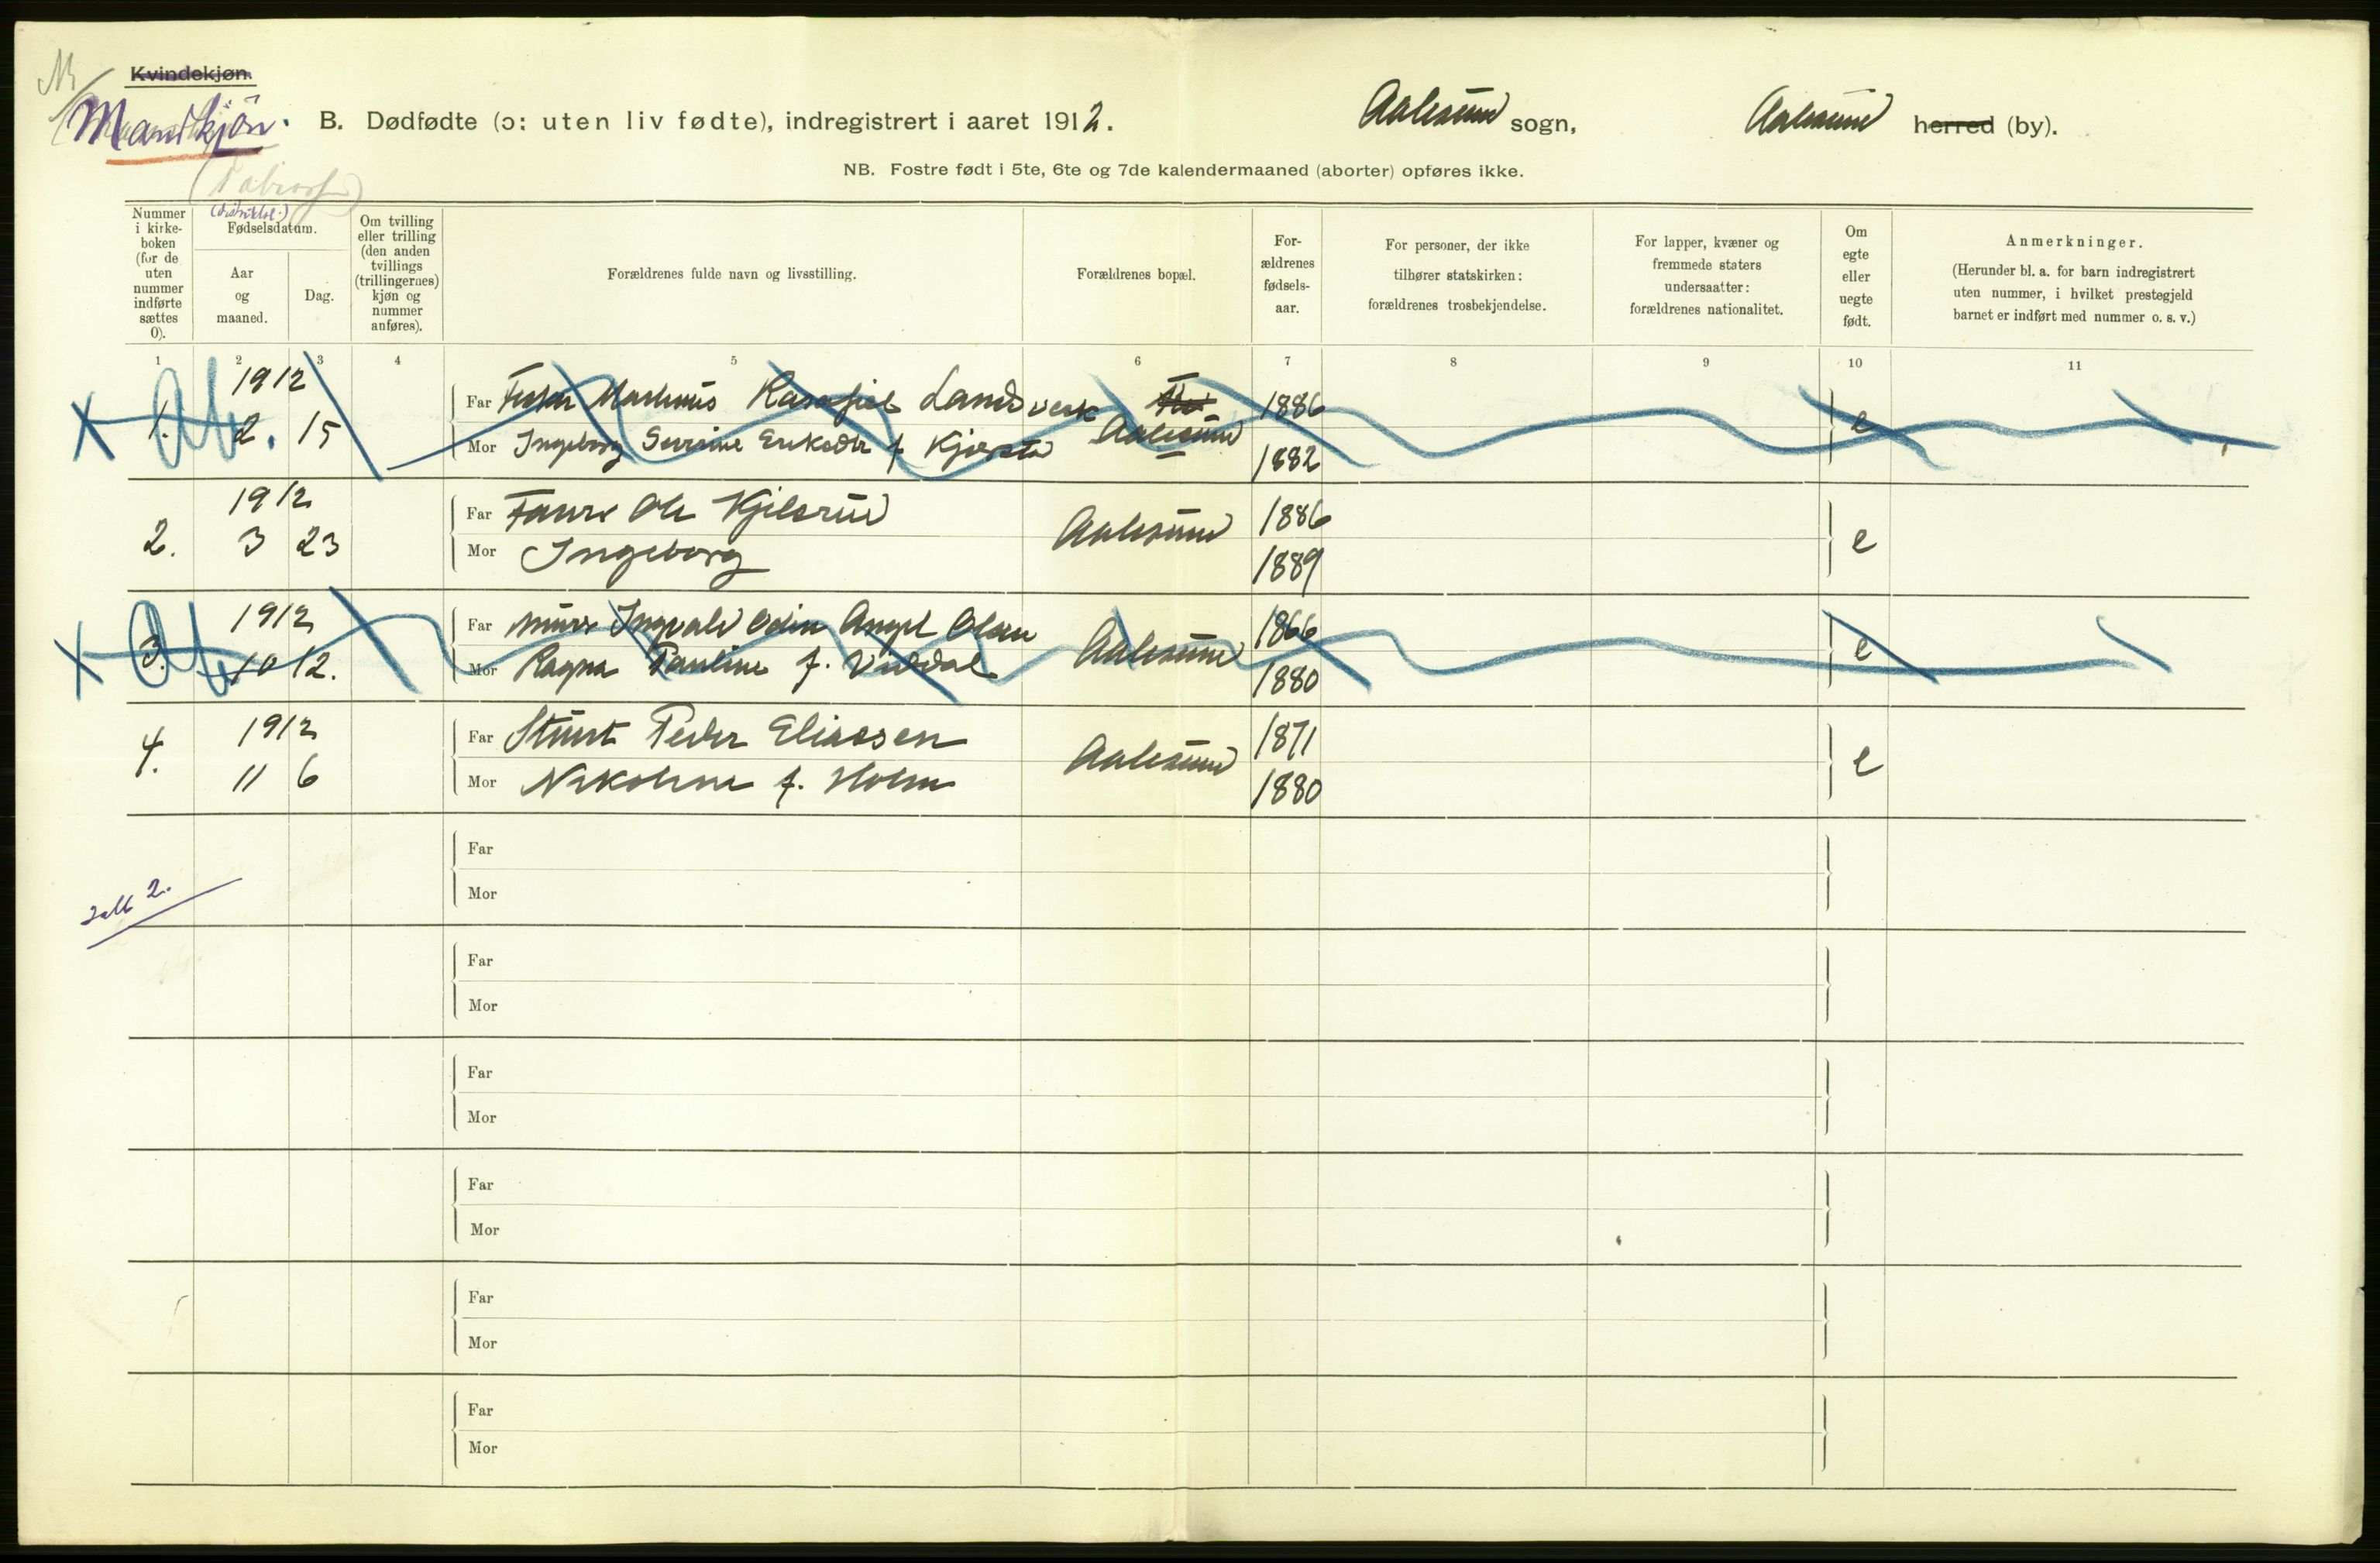 Kvindekjøn.
Mandkjøn.
B. Dødfødte (ɔ: uten liv fødte), indregistrert i aaret 1912.
Aalesund sogn,
Aalesund herred (by).
NB. Fostre født i 5te, 6te og 7de kalendermaaned (aborter) opføres ikke.
Nummer i kirke-
boken
(for de
uten
nummer
indførte
sættes
0).
Fødselsdatum.
Aar
og
maaned.
Dag.
Om tvilling
eller trilling
(den anden
tvillings
(trillingernes)
kjøn og
nummer
anføres).
Forældrenes fulde navn og livsstilling.
Forældrenes bopæl.
For-
ældrenes
fødsels-
aar.
For personer, der ikke
tilhører statskirken:
forældrenes trosbekjendelse.
For lapper, kvæner og
fremmede staters
undersaatter:
forældrenes nationalitet.
Om
egte
eller
uegte
født.
Anmerkninger.
(Herunder bl. a. for barn indregistrert
uten nummer, i hvilket prestegjeld
barnet er indført med nummer o. s. v.)
1 2 3 4 5 6 7 8 9 10 11
1912
Far Martinus Landverk 1886
1. 2. 15 Aalesund e
Mor Ingeborg Severine f. 1882
1912
Far Ole Kjelsrud 1886
2. 3 23 Aalesund e
Mor Ingeborg 1889
1912
Far Ingvald Odin Olsen 1866
3. 10 12. Aalesund e
Mor Ragna Pauline f. 1880
1912
Far Peder Eliassen 1871
4. 11 6 Aalesund e
Mor Nikoline f. Holm 1880
Far
Mor
2.
Far
Mor
Far
Mor
Far
Mor
Far
Mor
Far
Mor